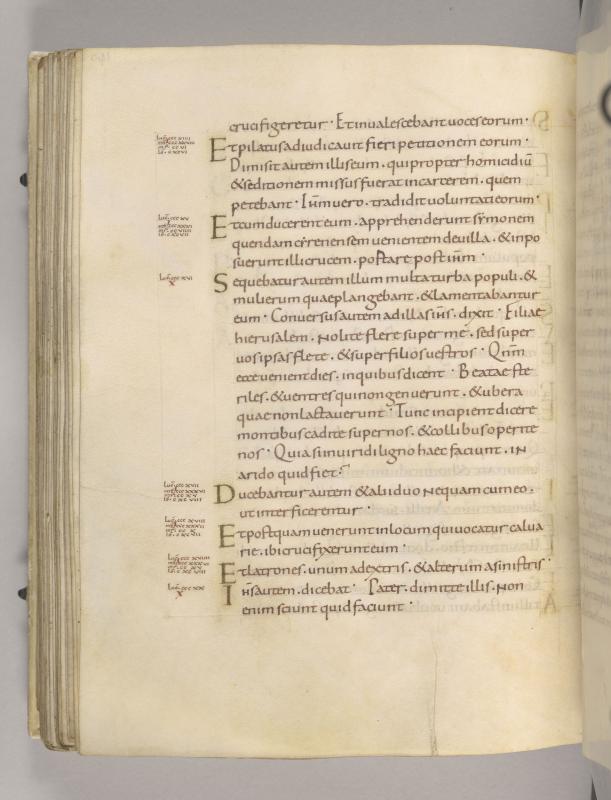 crucifigeretur · Et invalescebant voces eorum ·
Et pilatus adiudicavit fieri petitionem eorum ·
Dimisit autem illis eum · qui propter homicidiū
& seditionem missus fuerat in carcerem · quem
petebant · Ihm̄ vero · tradidit voluntati eorum ·
Et cum ducerent eum · apprehenderunt symonem
quendam cyrenensem venientem de villa · & inpo
suerunt illi crucem · portare post ihm̄ ·
Sequebatur autem illum multa turba populi · &
mulierum quae plangebant · & lamentabantur
eum · Conversus autem ad illas ihs̄ · dixit · Filiae
hierusalem · Nolite flere super me · sed super
vos ipsas flete · & super filios vestros · Qnm̄
ecce venient dies · in quibus dicent · Beatae ste
riles · & ventres qui non genuerunt · & ubera
quae non lactaverunt · Tunc incipient dicere
montibus cadite super nos · & collibus operite
nos · Quia si in viridi ligno haec faciunt · in
arido quid fiet ·
Ducebantur autem & alii duo nequam cum eo ·
ut interficerentur ·
Et postquam venerunt in locum qui vocatur calva
rie · ibi crucifixerunt eum ·
Et latrones · unum a dextris · & alterum a sinistris ·
Ihs̄ autem · dicebat · Pater · dimitte illis · Non
enim sciunt quid faciunt ·